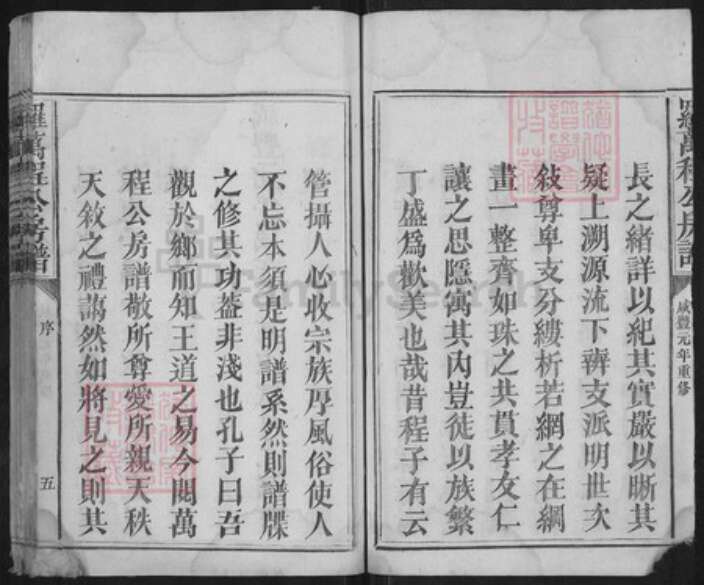 羅萬程公房譜
咸豐元年重修
長之緒詳以紀其實嚴以晰其
疑上溯源流下辨支派明世次
敍尊卑支分縷析若網之在綱
畫一整齊如珠之共貫孝友仁
讓之思隱寓其內豈徒以族繁
丁盛爲歡美也哉昔程子有云
管攝人心收宗族厚風俗使人
不忘本須是明譜系然則譜牒
之修其功葢非淺也孔子曰吾
觀於鄉而知王道之易今閱萬
程公房譜敬所尊愛所親天秩
天敘之禮藹然如將見之則其
羅萬程公房譜
序
五
FamilySearch